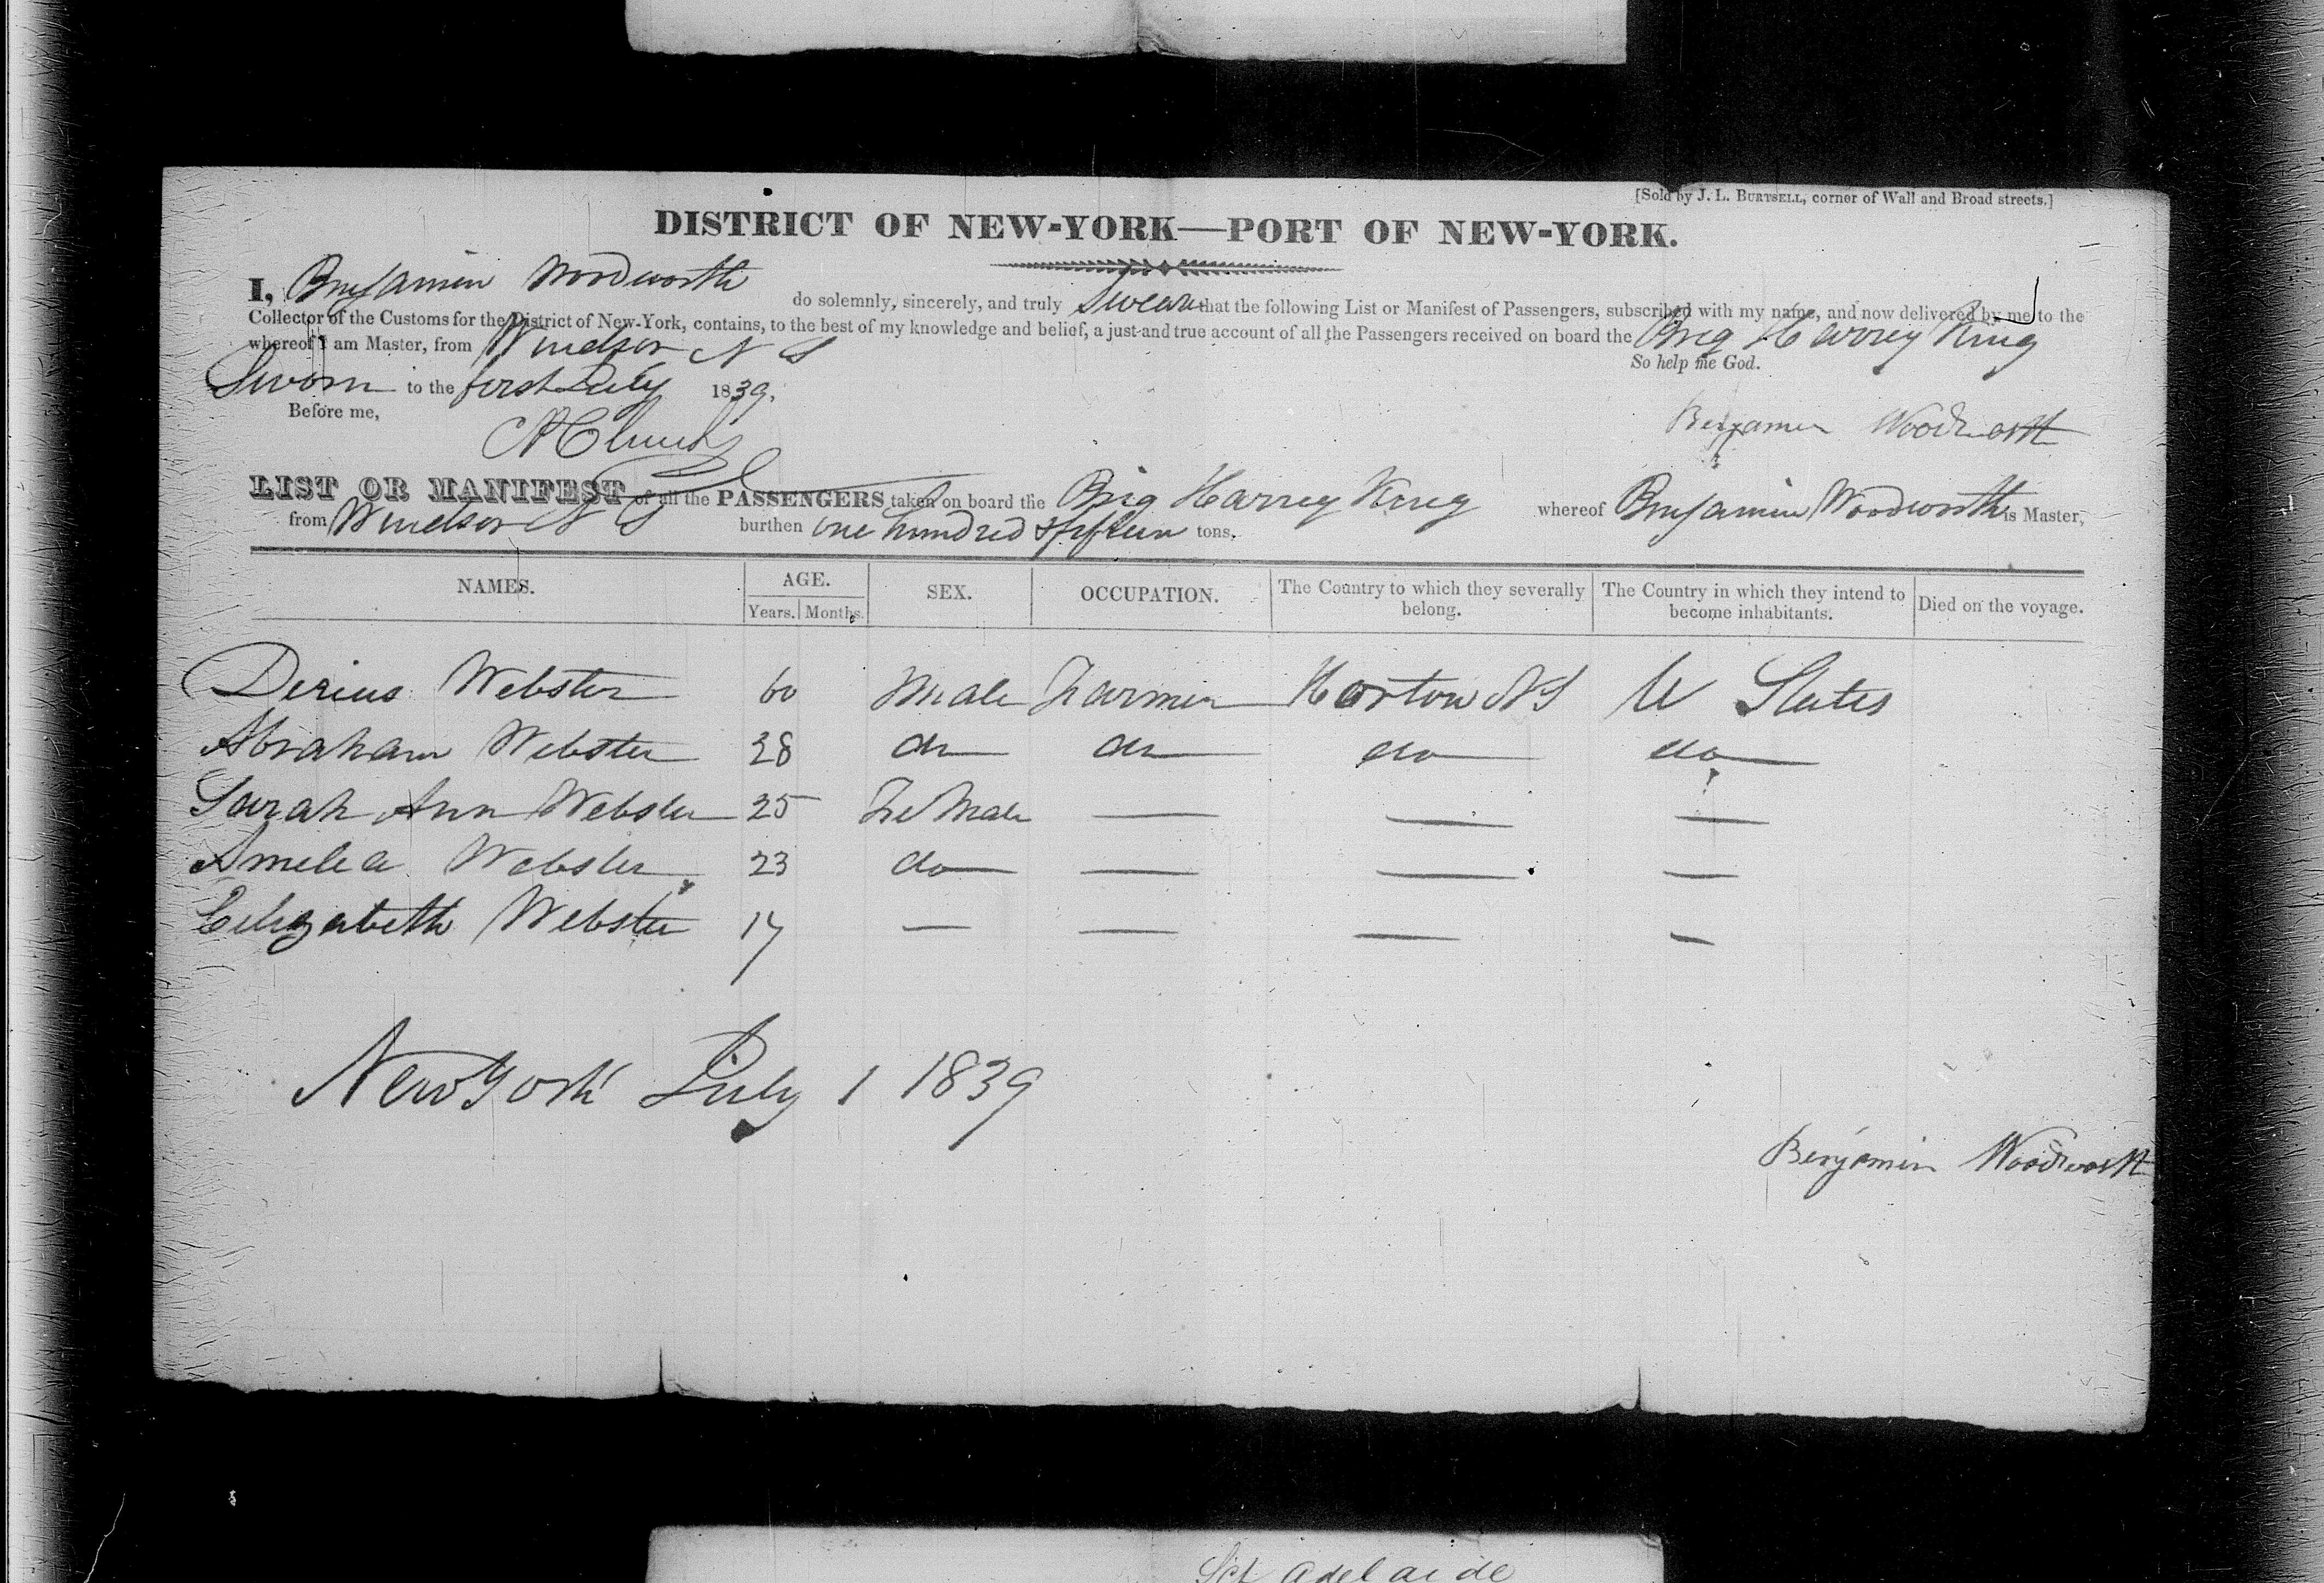 [Sold by J. L. BURTSELL, corner of Wall and Broad streets.]
DISTRICT OF NEW-YORK—PORT OF NEW-YORK.
I, Benjamin Woodworth do solemnly, sincerely, and truly Swear that the following List or Manifest of Passengers, subscribed with my name, and now delivered by me to the
Collector of the Customs for the District of New-York, contains, to the best of my knowledge and belief, a just and true account of all the Passengers received on board the Brig Harrey King
whereof I am Master, from Windsor N S
So help me God.
Sworn to the first July 1839.
Before me,
Benjamin Woodworth
LIST OR MANIFEST of all the PASSENGERS taken on board the Brig Harrey King whereof Benjamin Woodworth is Master,
from Windsor N S burthen one hundred & fifteen tons.
NAMES. AGE. SEX. OCCUPATION. The Country to which they severally belong. The Country in which they intend to become inhabitants. Died on the voyage.
Years. Months.
Derius Webster 60 Male Farmer Horton NS U States
Abraham Webster 28 do do do do
Sarah Ann Webster 25 Female — — —
Amelea Webster 23 do — — —
Elizabeth Webster 17 — — — —
New York July 1 1839
Benjamin Woodworth
Sch Adelaide